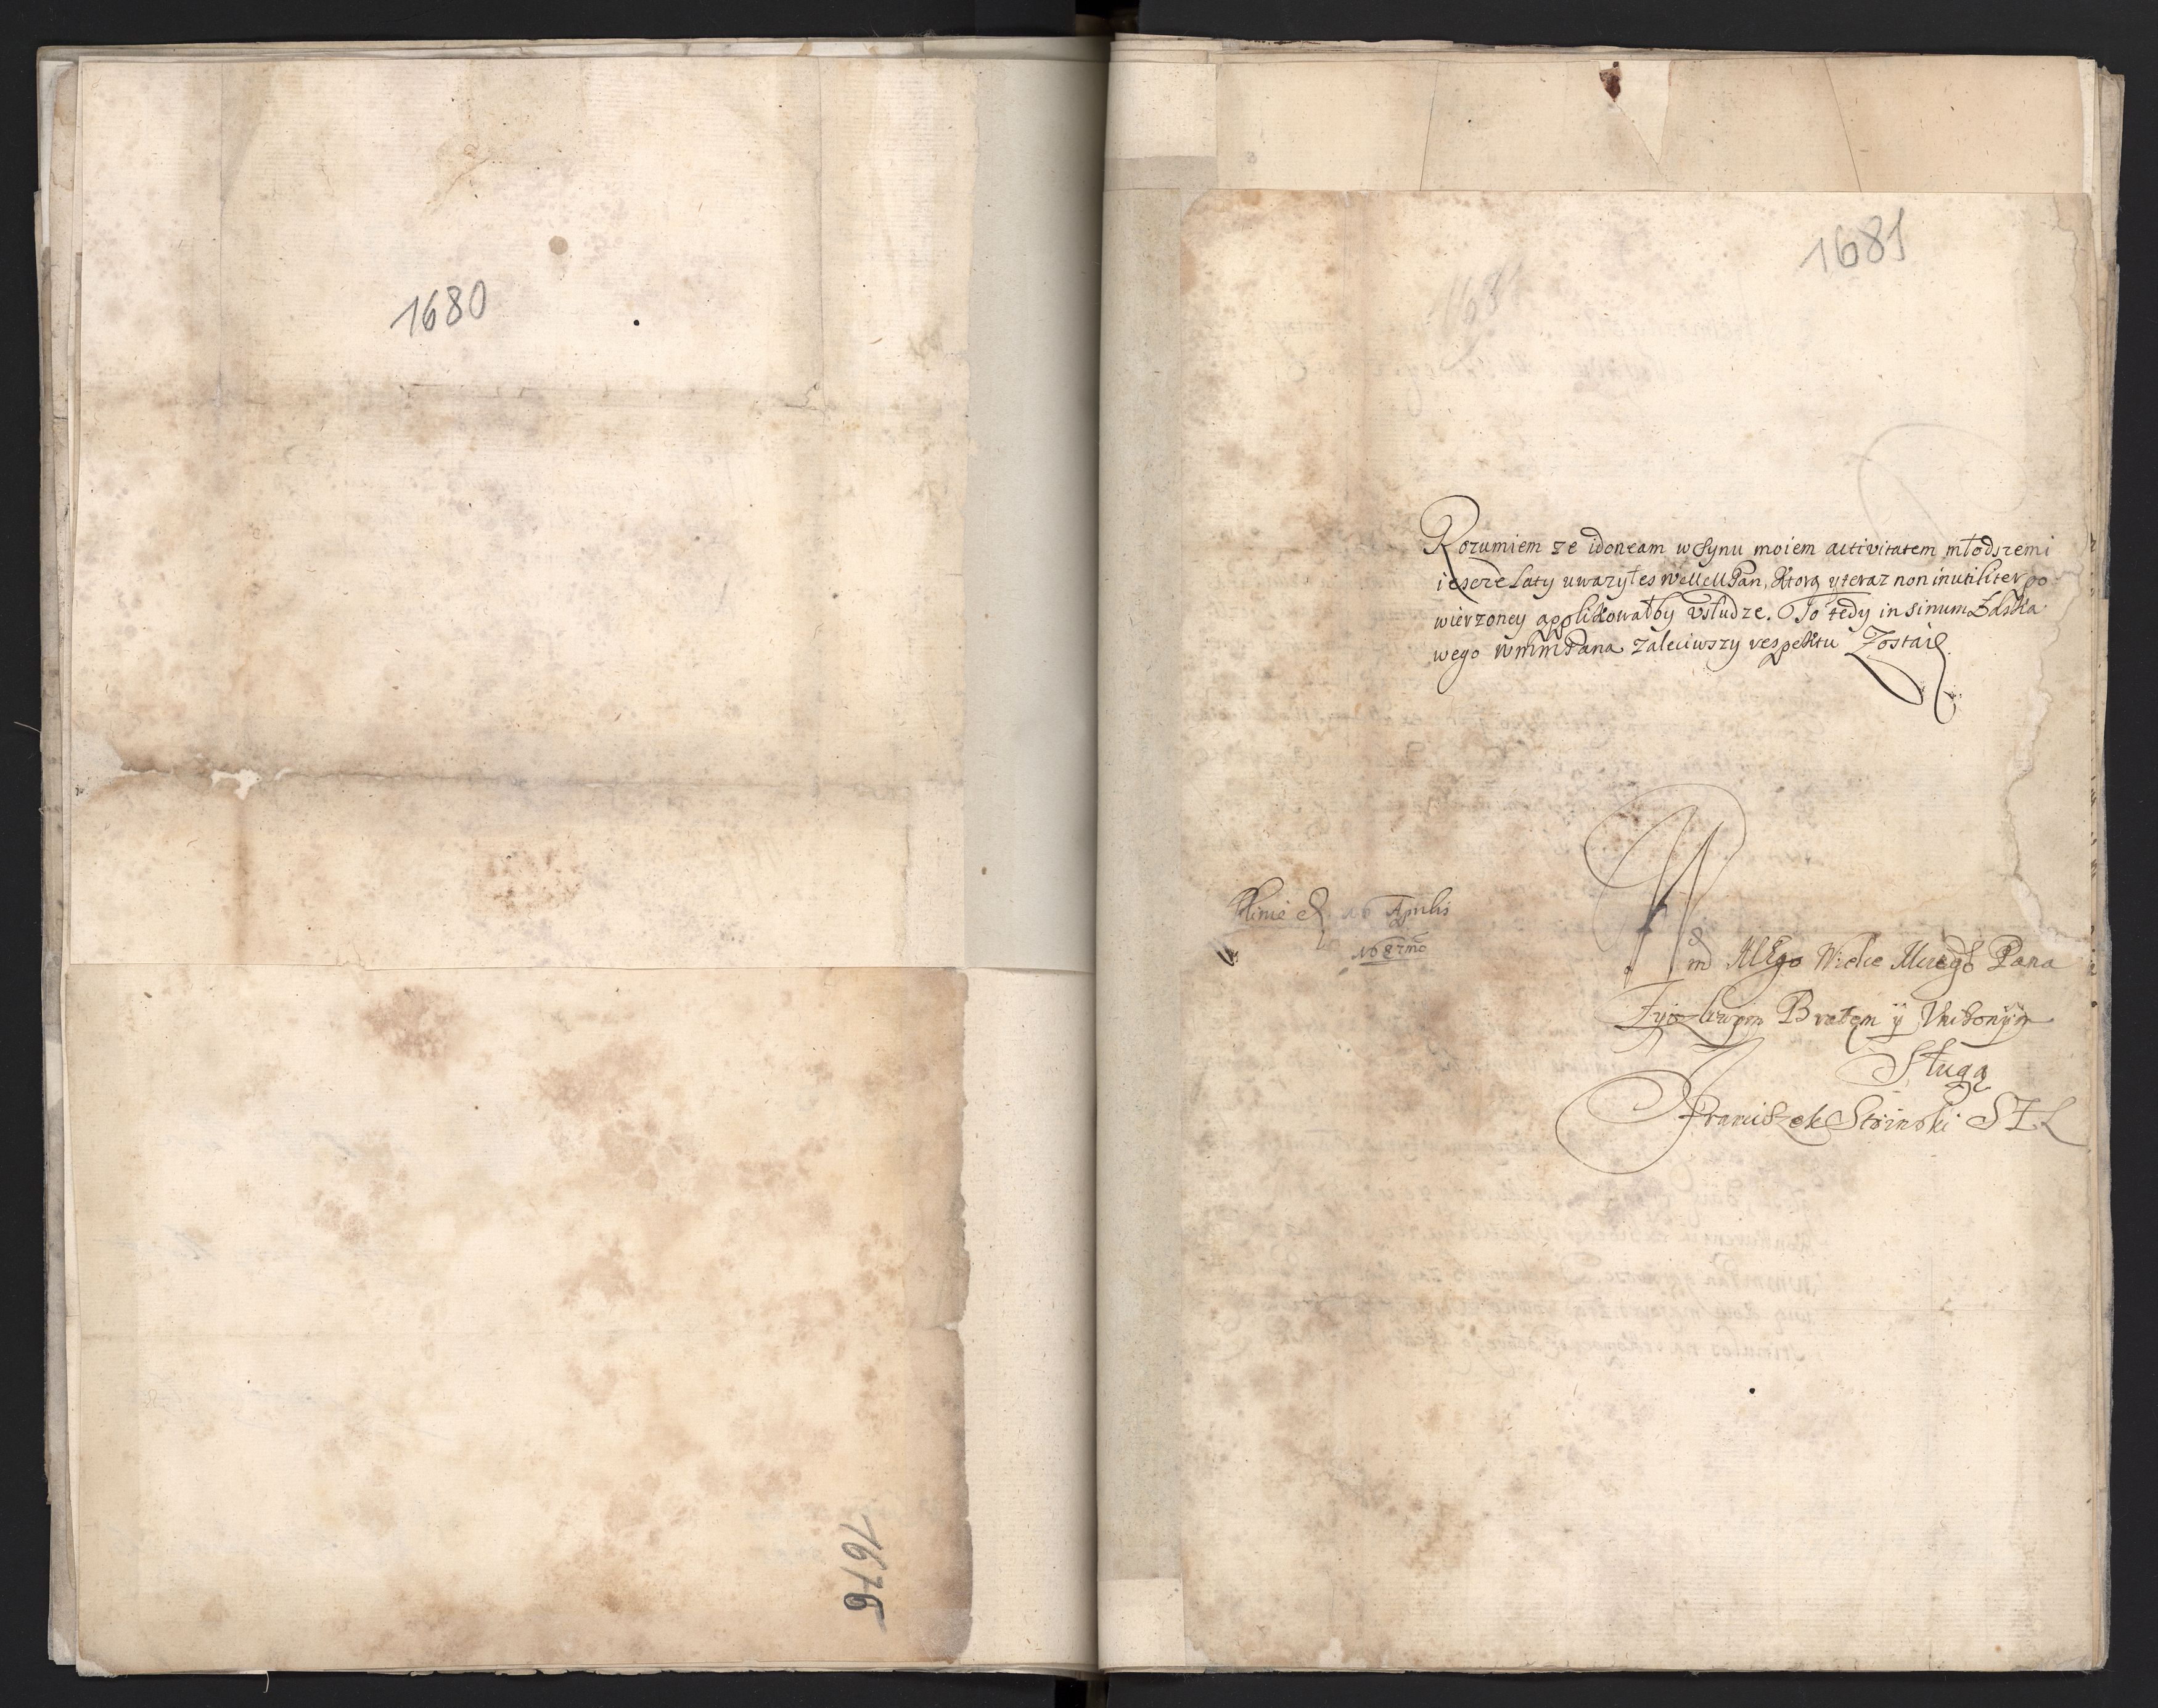 1680
1676
1681
Rozumiem ze idoneam w synu moiem activitatem młodszemi
ieszcze laty uwazyłes WMM Pan, ktorą y teraz non inutiliter po
wierzoney applikowałby usłudze. To tedy in sinum Łaska
wego WMM Pana zaleciwszy respektu Zostaię.
16 Aprilis
1687mo
Wm MMgo Wielce Mcego Pana
Zyczliwym Bratem y Unizonym
Sługą
Franciszek SZL